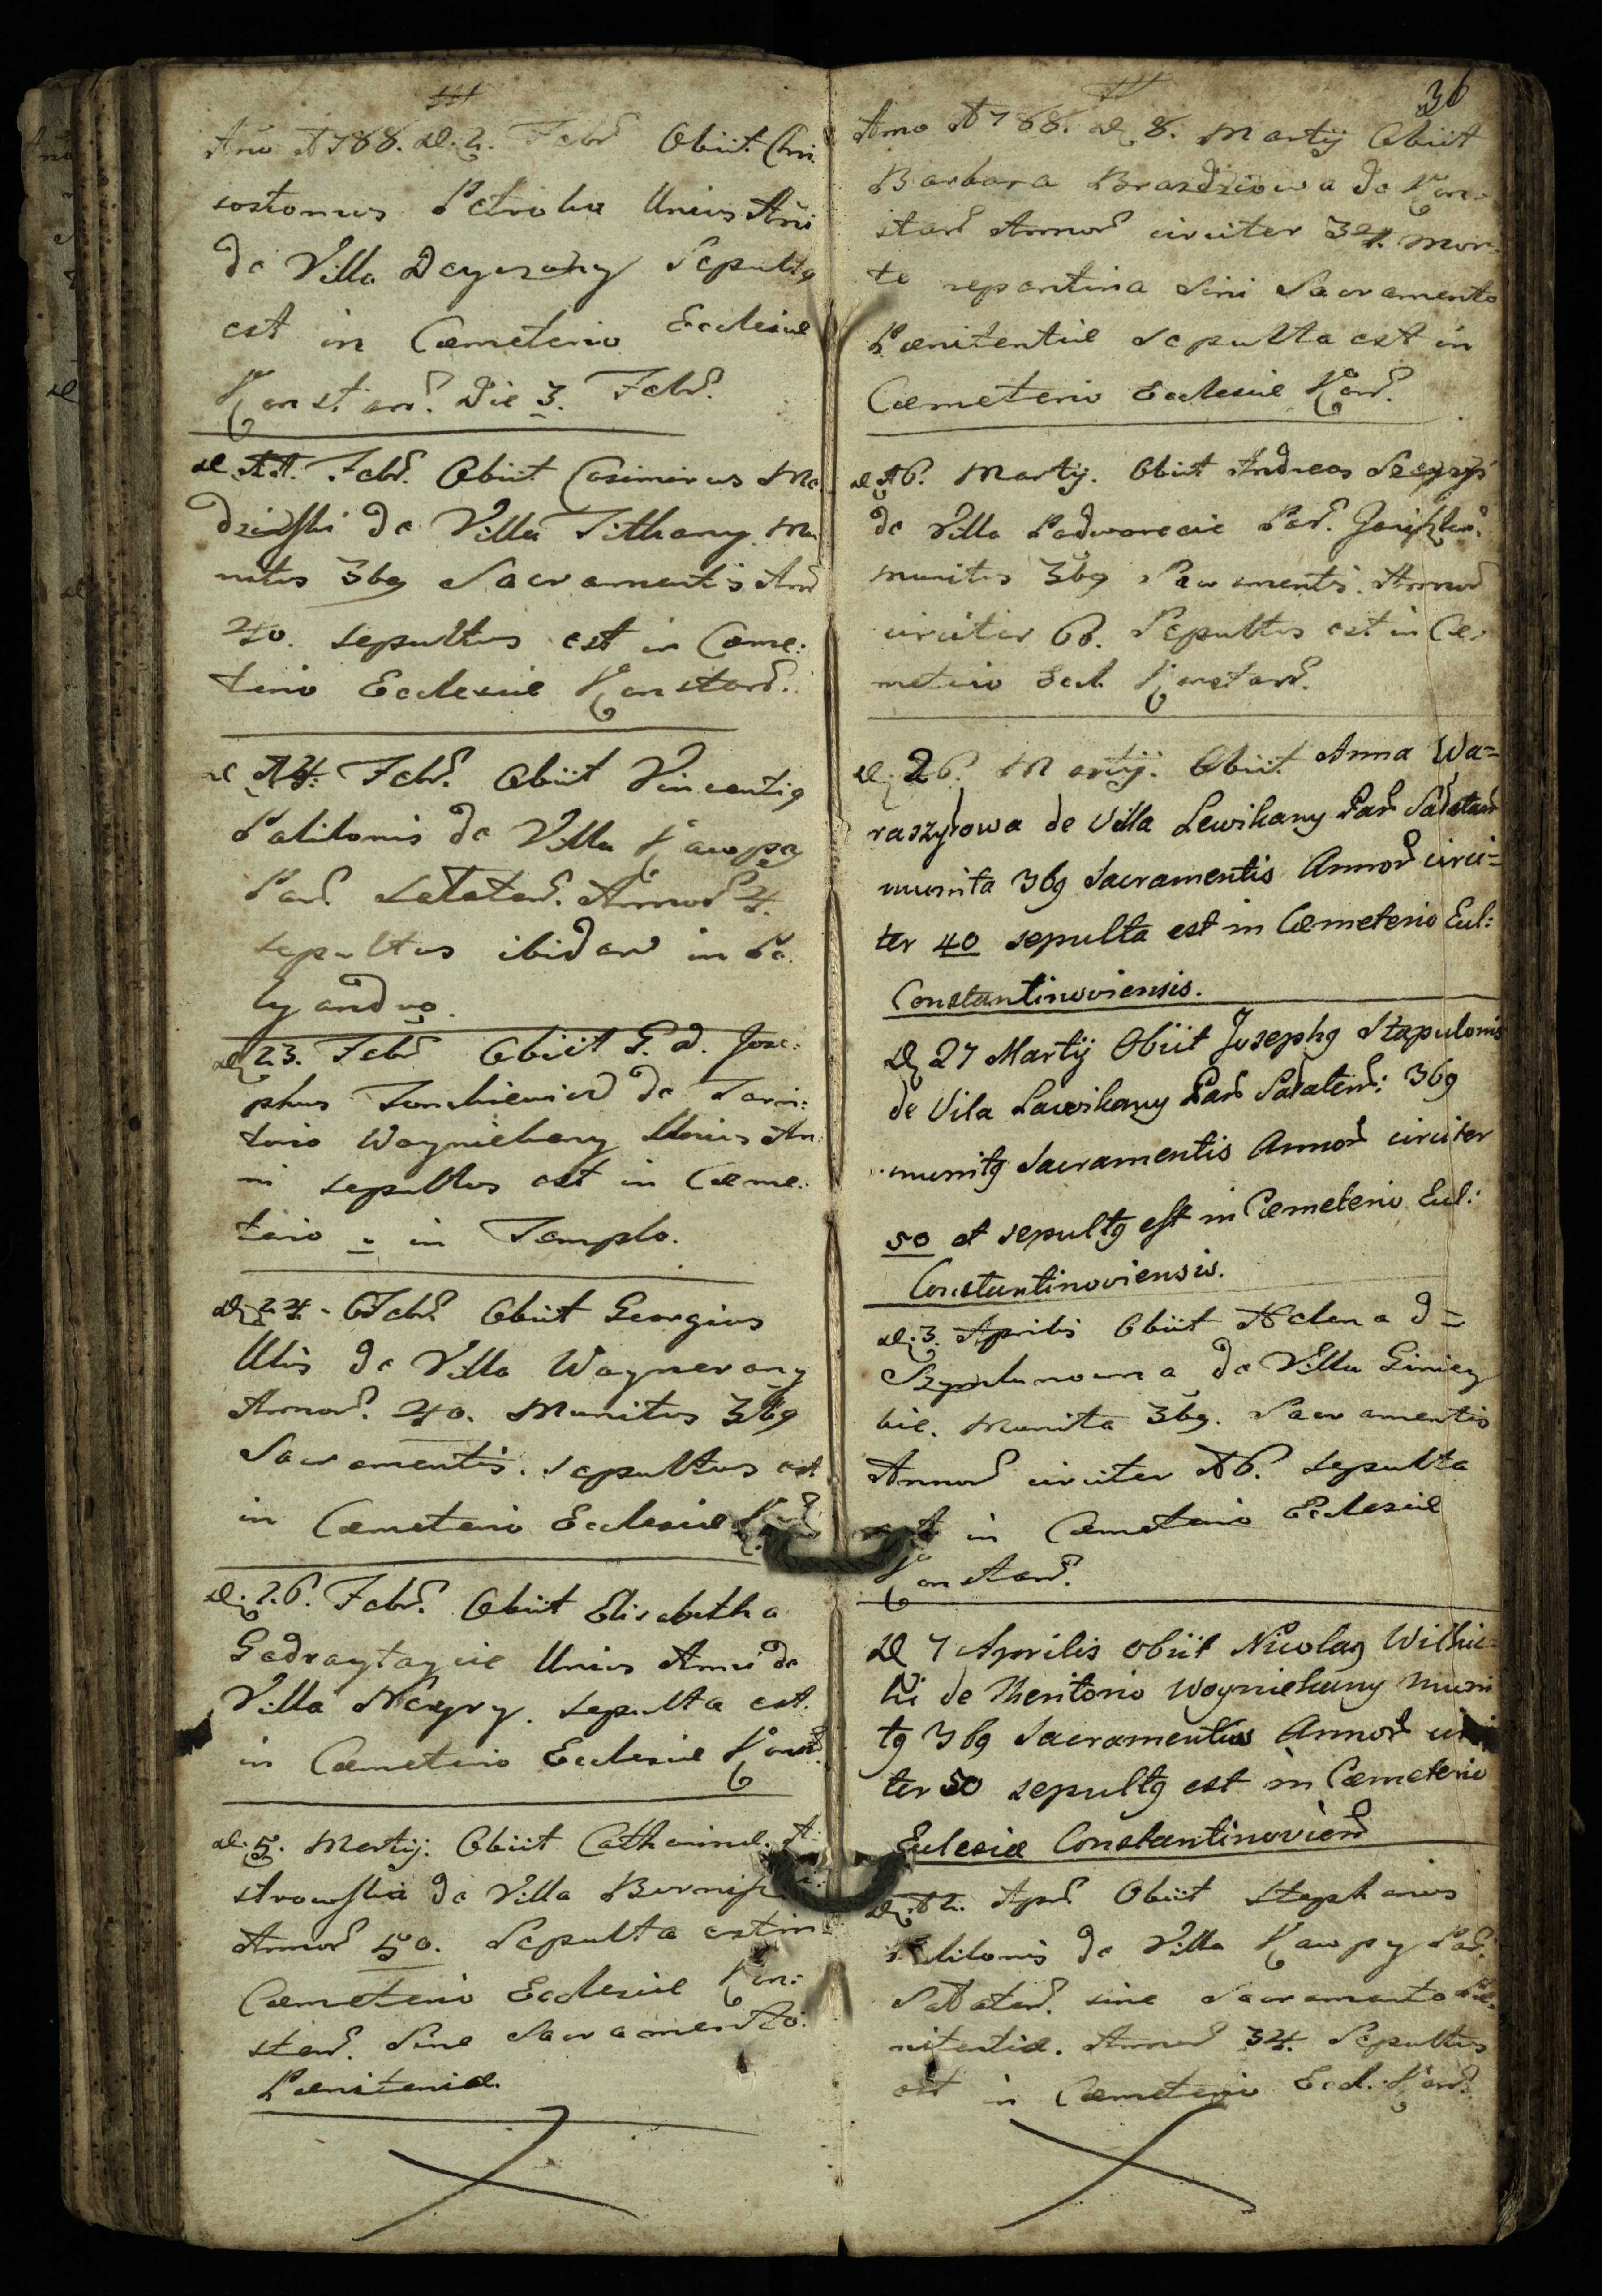 Año 1788. D. 2. Febr Obiit Chri
sostomus Petroha Unius Añi
de Villa Sepultg
est in Cæmeterio Ecclesiæ
Konstan. Die 3. Febr.
d. 11. Febr. Obiit Casimirus Me
dzidski de Villa Tilthany. Mu
nitus 3bg Sacramentis Ann
40. sepultus est in Cæme:
terio Ecclesiæ Konstan.
d 14. Febr. Obiit Vincentig
Palilonis de Villa Kawpy
Par Satatan. Annor 4.
sepultus ibidem in Po
lyandro.
d 23. Febr Obiit G. D. Jose:
phus de Terri:
torio Woyniekany Unius An
ni sepultus est in Cæme:
terio in Templo.
d. 24. Febr Obiit Georgius
Ulis de Villa Waynerany
Annor. 40. Munitus 3bg
Sacramentis. sepultus est
in Cæmeterio Ecclesiæ
d. 26. Febr. Obiit Elisabetha
Gedraytaycie Unius Anni de
Villa sepulta est.
in Cæmeterio Ecclesiæ Kons
d. 5. Martij. Obiit Catharina
strowska de Villa
Annor 50. Sepulta est in
Cæmeterio Ecclesiæ Kon:
stan. Sine Sacramento
Pænitenia.
36
Anno 1788. d 8. Martij Obiit
Barbara Brazdziowa de Kon:
stan Annor circiter 34. mor
te repentina Sini Sacramento
Pænitentiæ Sepulta est in
Cæmeterio Ecclesiæ Kon.
d 16. Martij. Obiit Andreas
de Villa Podworecie Par.
munitus 3bg Annor
circiter 60. Sepultus est in Cæ:
meterio Ecl. Konstan.
d. 26. Martij. Obiit Anna Wa=
raszydowa de Villa Lewikany Par Salatan
munita 3bg Sacramentis Annor circi=
ter 40 sepulta est in Cæmeterio Eccl:
Constantinoviensis.
D 27 Martij Obiit Josephg Stapulonis
de Vila Lawikany Par Salaten: 3bg
munitg Sacramentis Annor circiter
50 et sepultg est in Cæmeterio Eccl:
Constantinoviensis.
d. 3. Aprilis Obiit Helena d=
Szymlunowna de Villa Giniey
bie. Munita 3bg. Sacramentis
Annor circiter 16. sepulta
est in Cæmeterio Ecclesiæ
Konstan.
D 7 Aprilis obiit Nicolag Wilkic=
ki de Theritorio Woyniekany muni
tg 3bg Sacramentis Annor circi
ter 50 sepultg est in Cæmeterio
Eclesiæ Constantinovien
d. 12. Apr Obiit Stephanus
Palilonis de Villa Kawpy Par.
Salatan. sine Sacramento Pæ
nitentiæ. Annor 34. Sepultus
est in Cæmeterio Ecl. Kon.